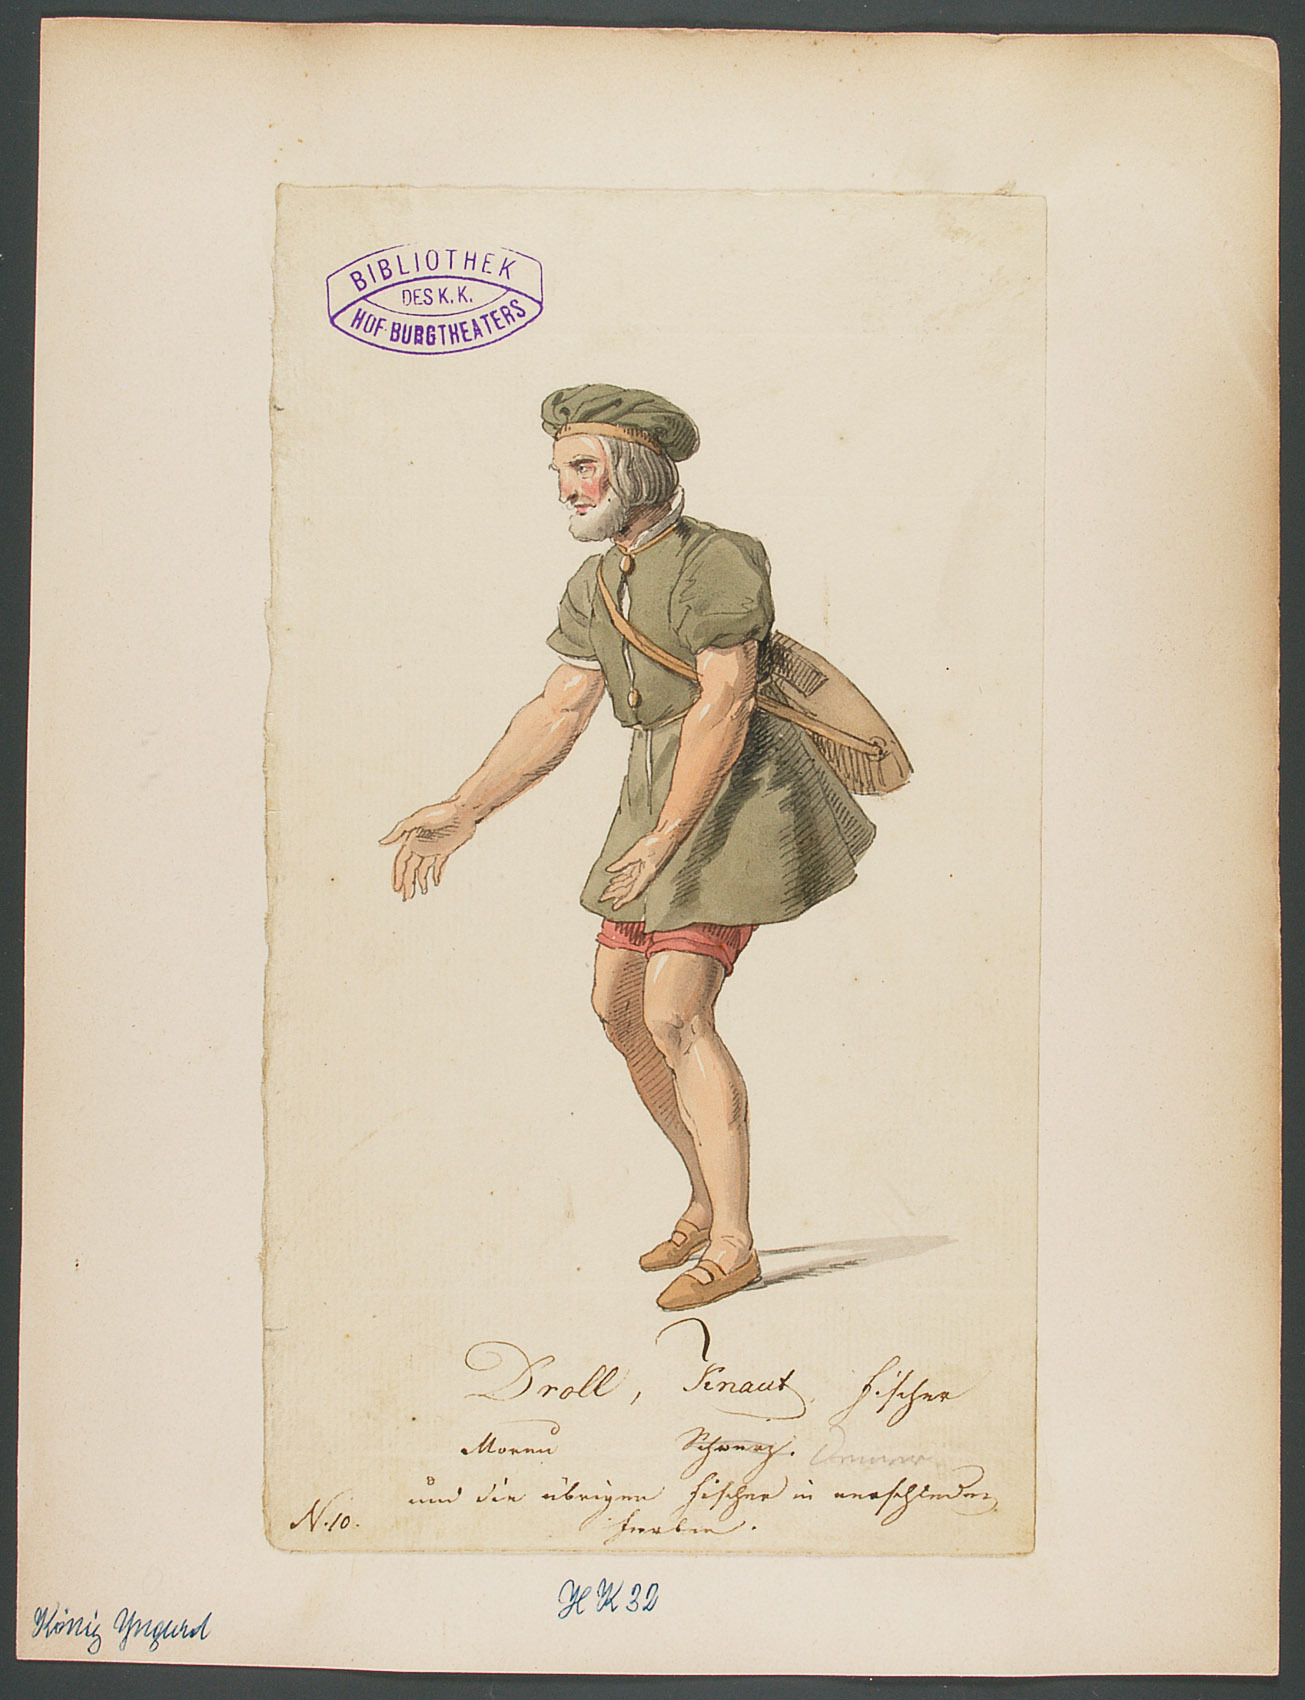 BIBLIOTHEK
DES K. K.
HOF-BURGTHEATERS
Droll, Knaut, Fischer
Moreau Schwarz.
und die übrigen Fischer in verschieden
Farben.
N. 10.
HK 32
König Yngurd